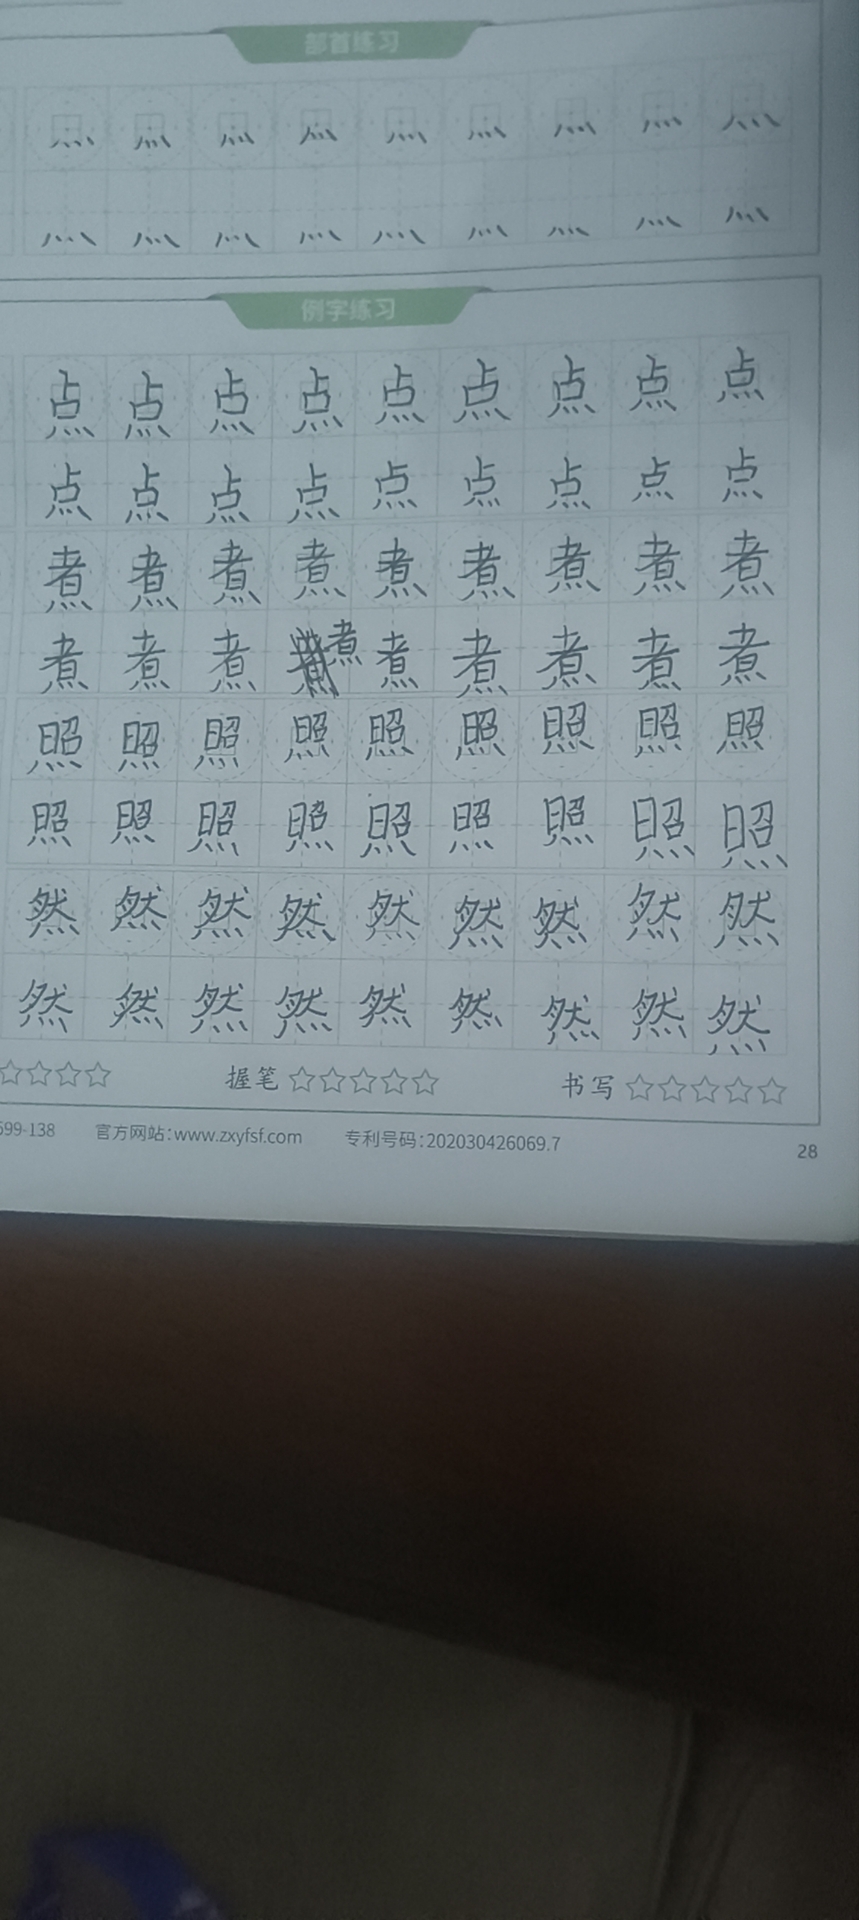 部首练习
灬 灬 灬 灬 灬 灬 灬 灬 灬
灬 灬 灬 灬 灬 灬 灬 灬 灬
例字练习
点 点 点 点 点 点 点 点 点
点 点 点 点 点 点 点 点 点
煮 煮 煮 煮 煮 煮 煮 煮 煮
煮 煮 煮 煮 煮 煮 煮 煮 煮
照 照 照 照 照 照 照 照 照
照 照 照 照 照 照 照 照 照
然 然 然 然 然 然 然 然 然
然 然 然 然 然 然 然 然 然
握笔 ☆☆☆☆☆ 书写 ☆☆☆☆☆
599-138 官方网站:www.zxyfsf.com 专利号码:202030426069.7
28